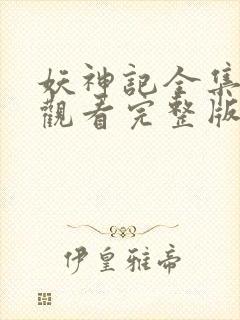 妖神記全集
觀看完整版
伊皇雅帝